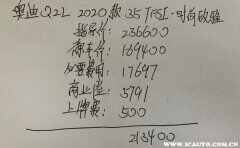 奥迪Q2L 2020款 35TFSI 时尚致雅
指导价: 236600
裸车价: 169400
必要费用: 17697
商业险: 5791
上牌费: 500
213400
www.xcauto.com.cn